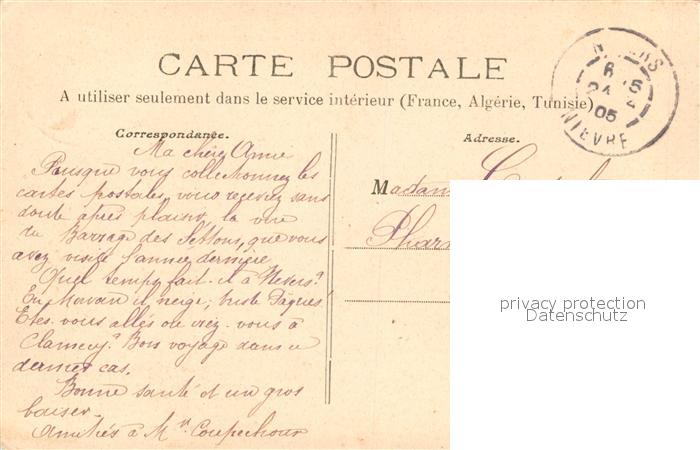 CARTE POSTALE
A utiliser seulement dans le service intérieur (France, Algérie, Tunisie)
NEVERS
6
24 4
05
NIEVRE
Correspondance.
Ma chère Amie
Puisque vous collectionnez les
cartes postales, vous recevrez sans
doute après plaisir, la vue
du Barrage des Settons, que vous
avez visité l'année dernière
Quel temps fait-il à Nevers?
En Morvan il neige, triste Pâques!
Etes-vous allés ou irez-vous à
Clamecy? Bon voyage dans ce
dernier cas.
Bonne santé et un gros
baiser.
Amitiés à Mr
Adresse.
Madam
Phar
privacy protection
Datenschutz